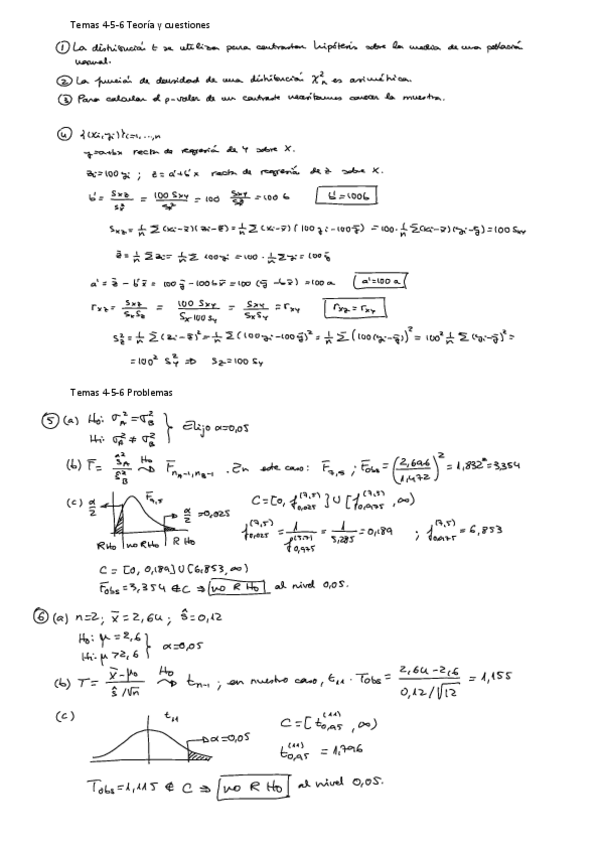 Temas 4-5-6 Teoría y cuestiones
① La distribución t se utiliza para contrastar hipótesis sobre la media de una población
normal.
② La función de densidad de una distribución χ²ₙ es asimétrica.
③ Para calcular el p-valor de un contraste necesitamos conocer la muestra.
④ {(xi,yi)}i=1,...,n
y=a+bx recta de regresión de Y sobre X.
zi=100yi ; z=a'+b'x recta de regresión de z sobre X.
b' = Sxz/S²x = 100 Sxy/S²x = 100 Sxy/S²x = 100 b b'=100b
Sxz = 1/n Σ(xi-x̄)(zi-z̄) = 1/n Σ(xi-x̄)(100yi-100ȳ) = 100·1/n Σ(xi-x̄)(yi-ȳ) = 100 Sxy
z̄ = 1/n Σzi = 1/n Σ 100yi = 100·1/n Σyi = 100ȳ
a' = z̄ - b'x̄ = 100ȳ - 100bx̄ = 100(ȳ - bx̄) = 100a a'=100a
rxz = Sxz/SxSz = 100 Sxy/Sx·100Sy = Sxy/SxSy = rxy rxz = rxy
S²z = 1/n Σ(zi-z̄)² = 1/n Σ(100yi-100ȳ)² = 1/n Σ(100(yi-ȳ))² = 100² 1/n Σ(yi-ȳ)² =
= 100² S²y ⇒ Sz = 100 Sy
Temas 4-5-6 Problemas
⑤ (a) H₀: σ²A = σ²B
H₁: σ²A ≠ σ²B } Elijo α=0,05
(b) F = Ŝ²A/Ŝ²B H₀ ⇝ F nA-1,nB-1 . En este caso: F7,5 ; Fobs = (2,696/1,472)² = 1,832² = 3,354
(c) α/2 F7,5 α/2 = 0,025 C = [0, f(7,5)0,025] ∪ [f(7,5)0,975, ∞)
RH₀ no RH₀ RH₀ f(7,5)0,025 = 1/f(5,7)0,975 = 1/5,285 = 0,189 ; f(7,5)0,975 = 6,853
C = [0, 0,189] ∪ [6,853, ∞)
Fobs = 3,354 ∉ C ⇒ no R H₀ al nivel 0,05.
⑥ (a) n=2; x̄=2,64; ŝ=0,12
H₀: μ=2,6
H₁: μ>2,6 } α=0,05
(b) T = x̄-μ₀/ŝ/√n H₀ ⇝ tn-1 ; en nuestro caso, t11 . Tobs = 2,64-2,6/0,12/√12 = 1,155
(c) t11 α=0,05 C = [t(11)0,95, ∞)
t(11)0,95 = 1,796
Tobs = 1,115 ∉ C ⇒ no R H₀ al nivel 0,05.